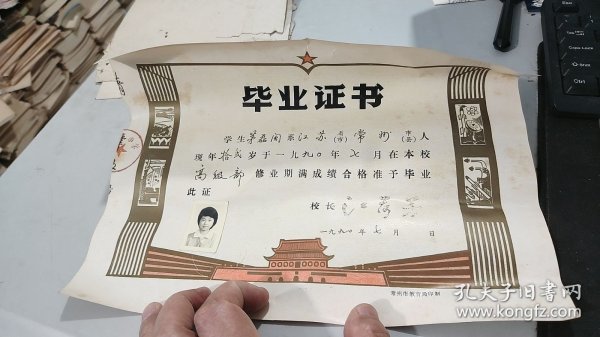 毕业证书
学生 系江苏省(市)常州市(县)人
现年拾弍岁于一九九〇年七月在本校
高级部修业期满成绩合格准予毕业
此证
校长
一九九〇年七月 日
常州市教育局印制
孔夫子旧书网
Copy Look
Shift
Ctrl